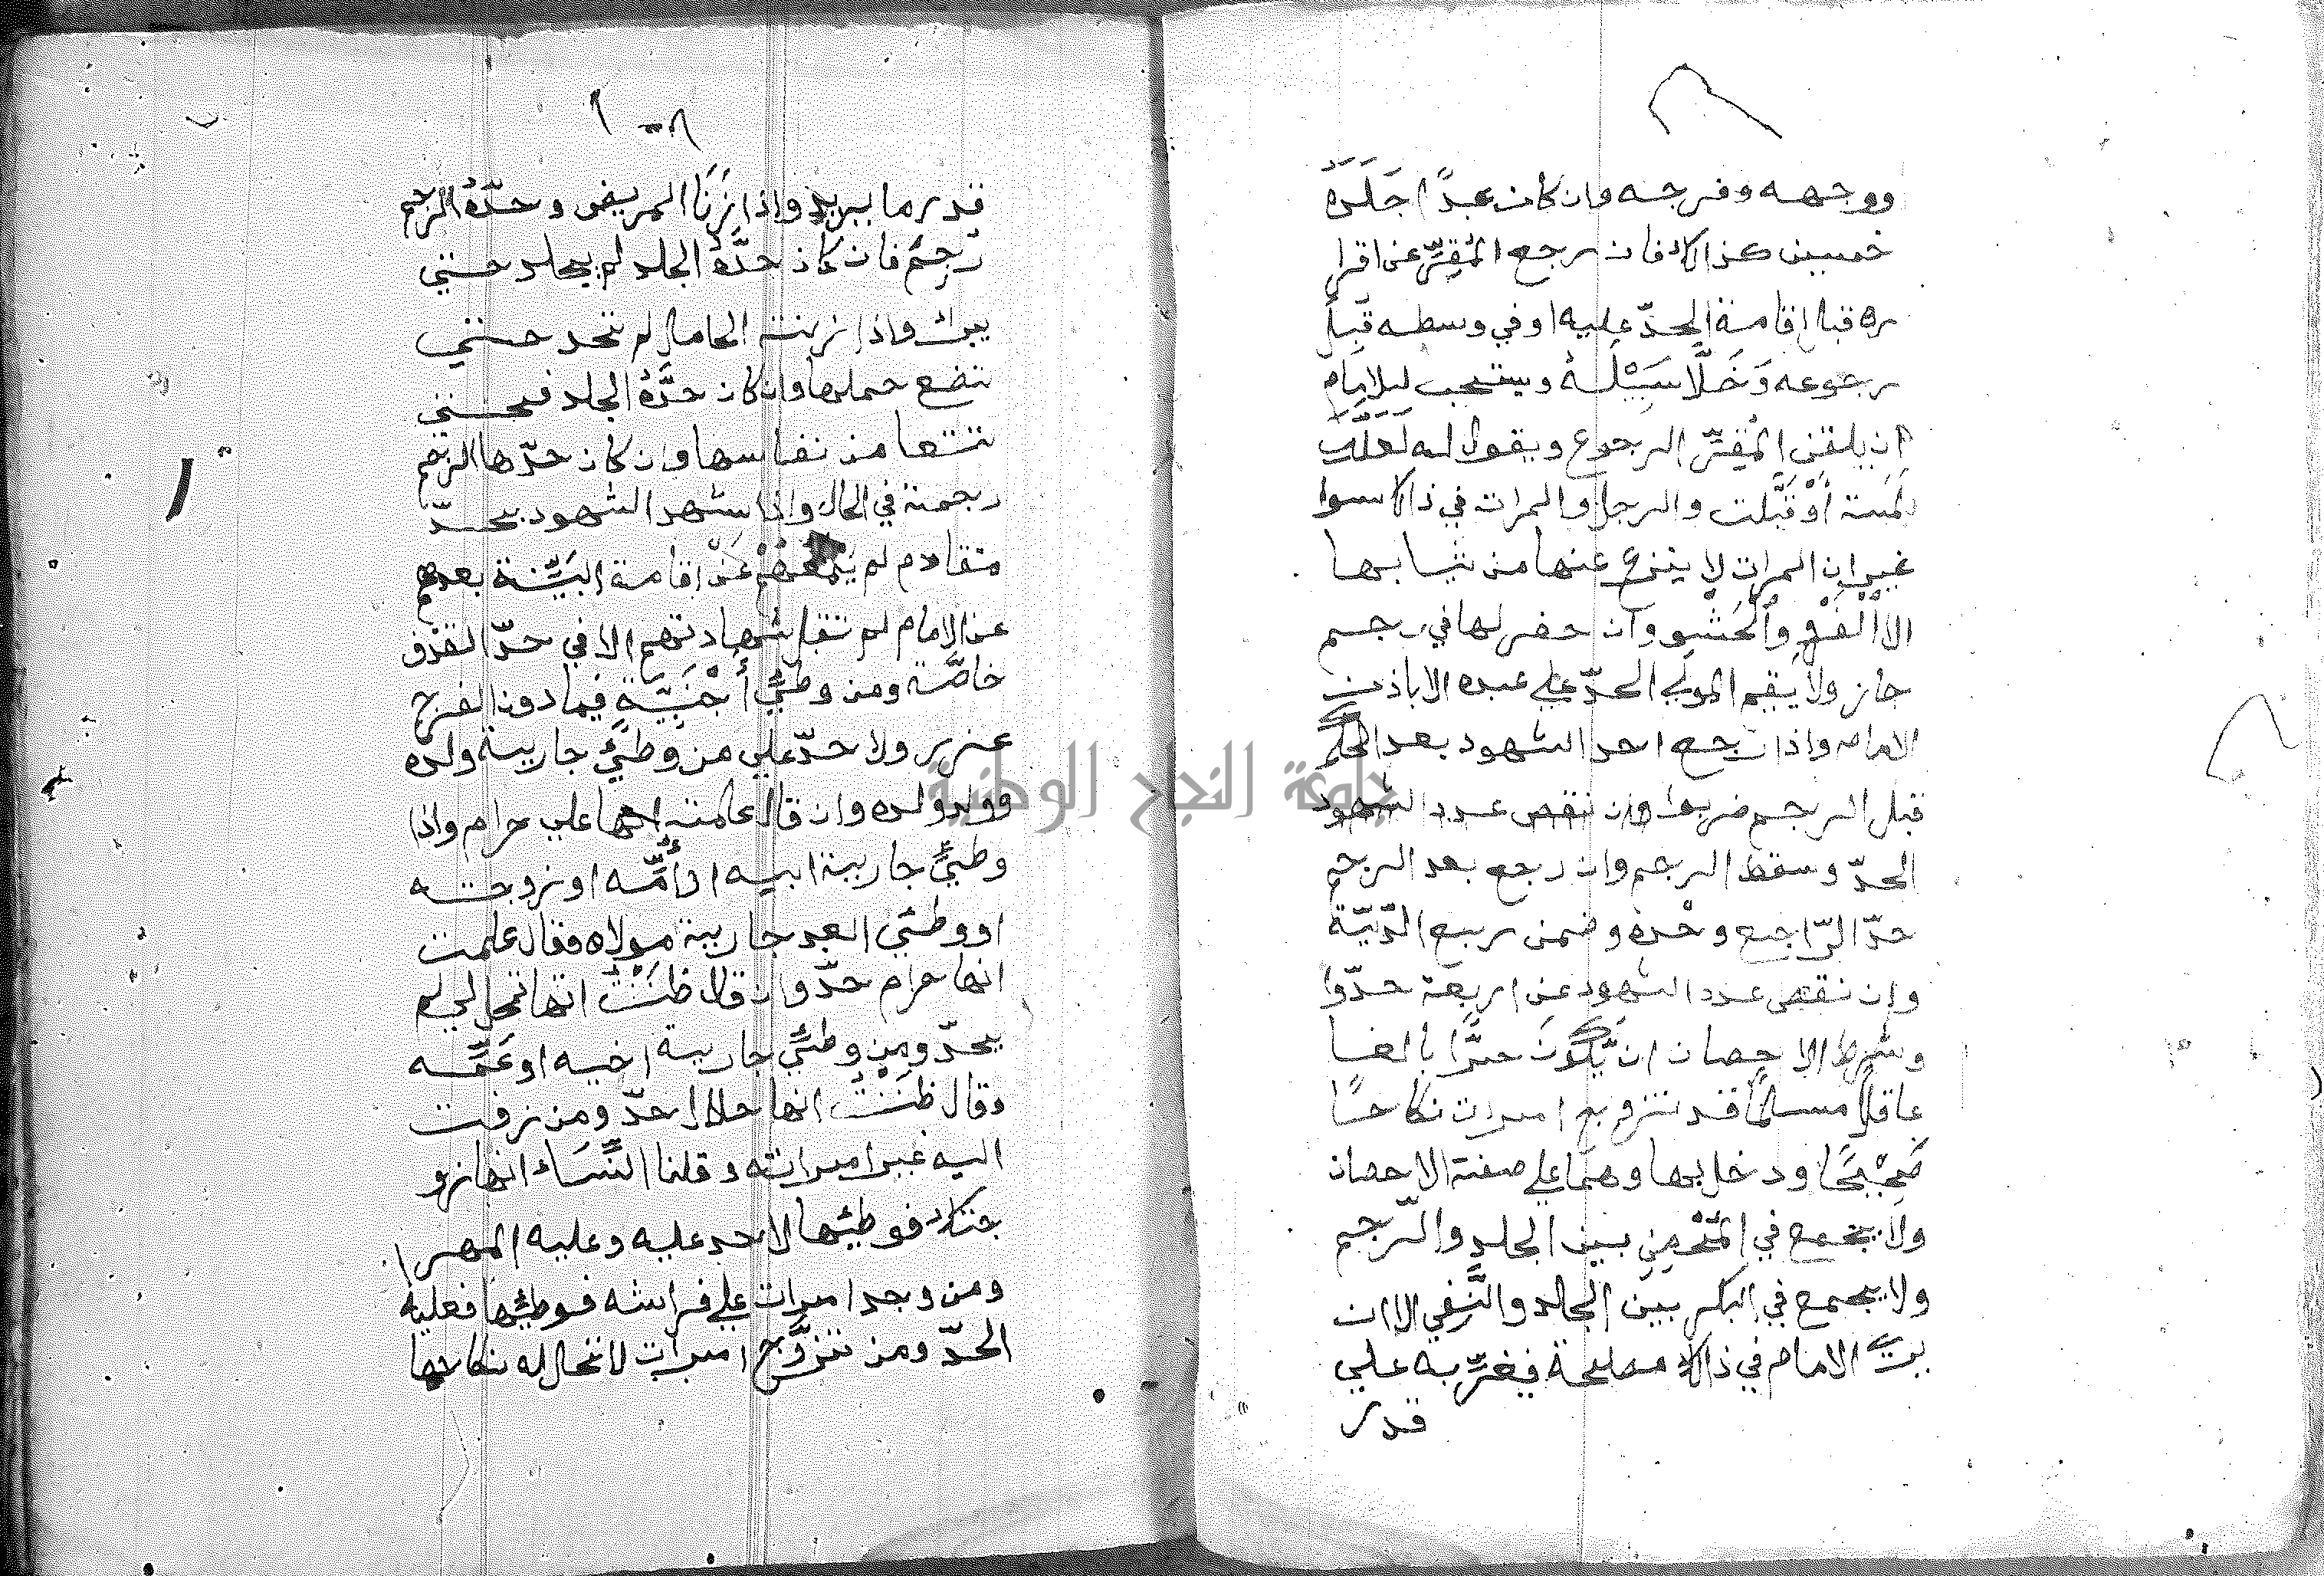 ووجهه وفرجه وان كان عبدًا جَلَدَهُ
خمسين كذالك فان رجع المُقِرّ عن اقرا
ره قبل اقامة الحدّ عليه او في وسطه قبل
رجوعه وَخَلَّا سَبِيْلَهُ ويستحب للامام
ان يلقن المُقِرّ الرجوع ويقول له لَعَلَّكَ
لمست أَوْ قَبَّلت والرجل والمرات في ذالك سوا
غير ان المرات لا ينزع عنها من ثيابها
الا الفَرْو والحَشْو وان حفر لها في رجم
جاز ولا يقيم المولي الحدّ علي عبده الا باذن
الامام واذا رجع احد الشهود بعد الحكم
قبل الرجم ضربوا وان نقص عدد الشهود
الحدّ وسقط الرجم وان رجع بعد الرجم
حدّ الرّاجع وحْدَهُ وضمن ربيع الدّيّة
وان نقص عدد الشهود عن اربعة حدّوا
وشرط الاحصان ان يّكُونَ حرًّا بالغا
عاقلًا مسلمًا قد تزوج امرات نكاحًا
صَحِيْحًا ودخل بها وهما علي صفة الاحصان
ولا يجمع في المُحْصِنِ بين الجلد والرّجم
ولا يجمع في البكر بين الجلد والنَّفي الا ان
يرى الامام في ذالك مصلحة فيغرّبه علي
قدر
١٠٨
قدر ما يريد واذا زَنَا المريض وحدّهُ الرجم
رجم فان كان حدَّهُ الجلد لم يجلد حتي
يبرا واذا زنت الحامل لم تحد حتي
تضع حملها وان كان حدَّهُ الجلد فحتي
تتعا من نفاسها وان كان حدّها الرجم
رجمة في الحال واذا شهد الشهود بحدّ
متقادم لم يمنعهم عَنْ اقامة البَيِّنة بعدهم
عن الامام لم تقبل شهادتهم الا في حدّ القذف
خاصّة ومن وطئَ أَجْنَبِيَّةٍ فيما دون الفرج
عزر ولا حدّ علي من وطئَ جارية ولده
وولد ولده وان قال علمت انها علي حرام واذا
وطئَ جارية ابيه او أُمِّه او زوجته
او وطئَ العبد جارية مولاه وقال علمت
انها حرام حدّ وان قال ظَنَنْتُ انها تحل لي لم
يحدّ ومِن وطئَ جارية اخيه او عَمِّه
وقال ظَنَنْت انها حلال حدّ ومن زفت
اليه غير امراته وقلنا النِّسَاء انها زو
جتك فوطئها لا حد عليه وعليه المهر
ومن وجد امرات علي فراشه فوطئها فعليه
الحدّ ومن تزوَّج امرات لا تحل له نكاحها
جامعة النجاح الوطنية